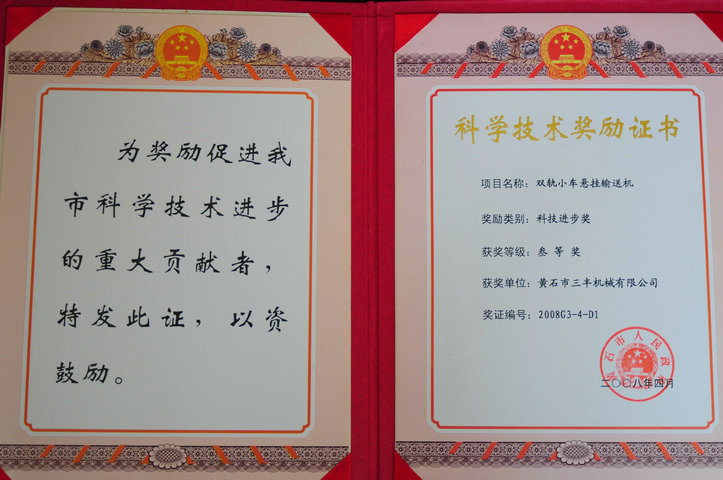 为奖励促进我
市科学技术进步
的重大贡献者，
特发此证，以资
鼓励。
科学技术奖励证书
项目名称：双轨小车悬挂输送机
奖励类别：科技进步奖
获奖等级：叁等奖
获奖单位：黄石市三丰机械有限公司
奖证编号：2008G3-4-D1
黄石市人民政府
二〇〇八年四月